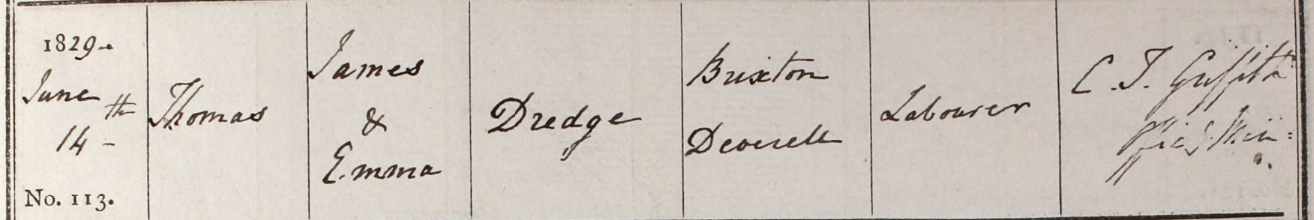 1829.
June
14th
No. 113.
Thomas
James
&
Emma
Dredge
Brixton
Deverell
Labourer
C. T. Griffith